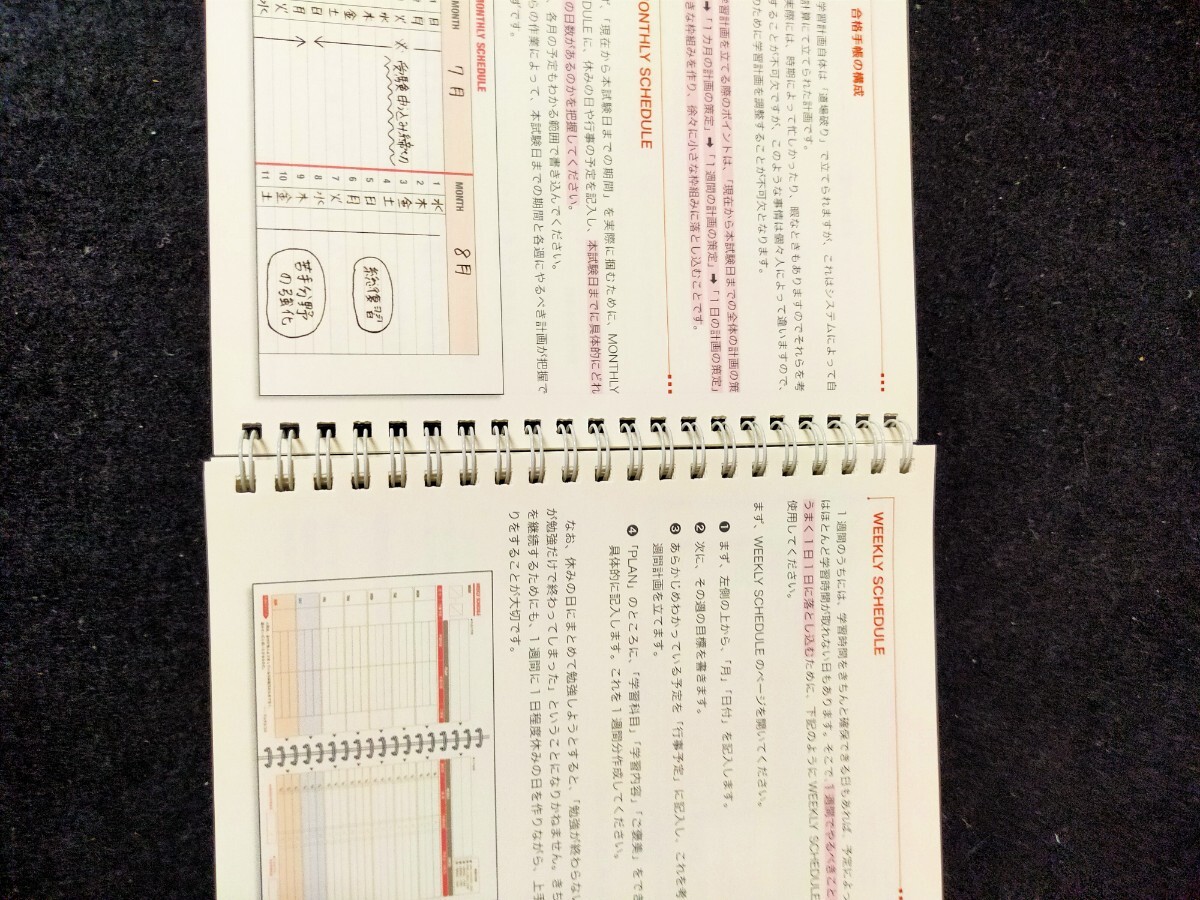 合格手帳の構成
学習計画自体は「道場破り」で立てられますが、これはシステムによって自
計算にて立てられた計画です。
実際には、時期によって忙しかったり、暇なときもありますのでそれらを考
することが不可欠ですが、このような事情は個々人によって違いますので、
のために学習計画を調整することが不可欠となります。
学習計画を立てる際のポイントは、「現在から本試験日までの全体の計画の策
➡「1カ月の計画の策定」➡「1週間の計画の策定」➡「1日の計画の策定」
きな枠組みを作り、徐々に小さな枠組みに落とし込むことです。
MONTHLY SCHEDULE
ず、「現在から本試験日までの期間」を実際に掴むために、MONTHLY
EDULEに、休みの日や行事の予定を記入し、本試験日までに具体的にどれ
の日数があるのかを把握してください。
、各月の予定もわかる範囲で書き込んでください。
らの作業によって、本試験日までの期間と各週にやるべき計画が把握で
ずです。
MONTHLY SCHEDULE
MONTH 7月
MONTH 8月
受験申込み締切
1 水
2 木
3 金
4 土
5 日
6 月
7 火
8 水
9 木
10 金
11 土
総復習
苦手分野
の強化
WEEKLY SCHEDULE
1週間のうちには、学習時間をきちんと確保できる日もあれば、予定によっ
はほとんど学習時間が取れない日もあります。そこで、1週間でやるべきこと
うまく1日1日に落とし込むために、下記のようにWEEKLY SCHEDULE
使用してください。
まず、WEEKLY SCHEDULEのページを開いてください。
❶ まず、左側の上から、「月」「日付」を記入します。
❷ 次に、その週の目標を書きます。
❸ あらかじめわかっている予定を「行事予定」に記入し、これを考
週間計画を立てます。
❹「PLAN」のところに、「学習科目」「学習内容」「ご褒美」をでき
具体的に記入します。これを1週間分作成してください。
なお、休みの日にまとめて勉強しようとすると、「勉強が終わらない
が勉強だけで終わってしまった」ということになりかねません。きち
を継続するためにも、1週間に1日程度休みの日を作りながら、上手
りをすることが大切です。